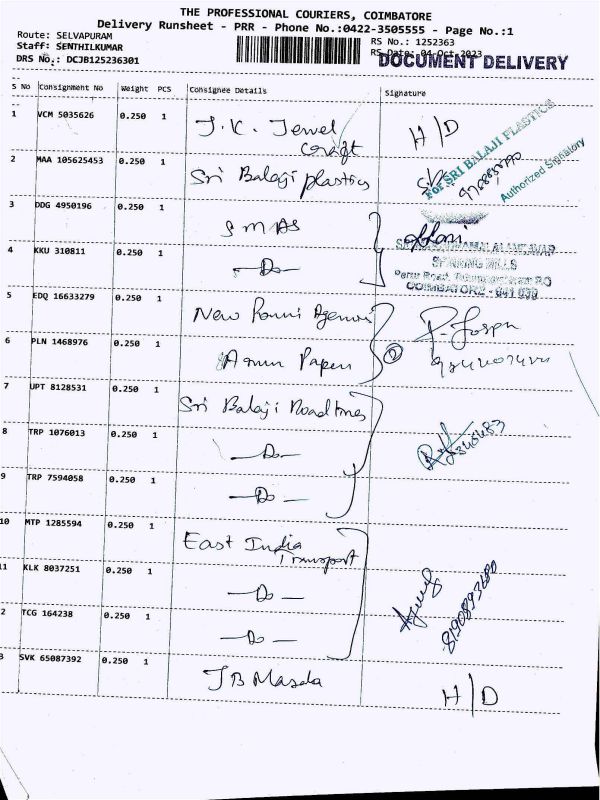 THE PROFESSIONAL COURIERS, COIMBATORE
Delivery Runsheet - PRR - Phone No.:0422-3505555 - Page No.:1
Route: SELVAPURAM
Staff: SENTHILKUMAR
DRS No.: DCJB125236301
RS No.: 1252363
RS Date: 04-Oct-2023
DOCUMENT DELIVERY
S No Consignment No Weight PCS Consignee Details Signature
1 VCM 5035626 0.250 1 J.K. Jewel Craft H/D
2 MAA 105625453 0.250 1 Sri Balaji plastics
For SRI BALAJI PLASTICS
Authorized Signatory
3 DDG 4950196 0.250 1 SMAS
4 KKU 310811 0.250 1 —Do—
SPINNING MILLS
COIMBATORE - 641 039
5 EDQ 16633279 0.250 1 New
6 PLN 1468976 0.250 1 Arun Papers
7 UPT 8128531 0.250 1 Sri Balaji Roadlines
8 TRP 1076013 0.250 1 —Do—
9 TRP 7594058 0.250 1 —Do—
10 MTP 1285594 0.250 1 East India Transport
11 KLK 8037251 0.250 1 —Do—
2 TCG 164238 0.250 1 —Do—
3 SVK 65087392 0.250 1 JB Masala H/D